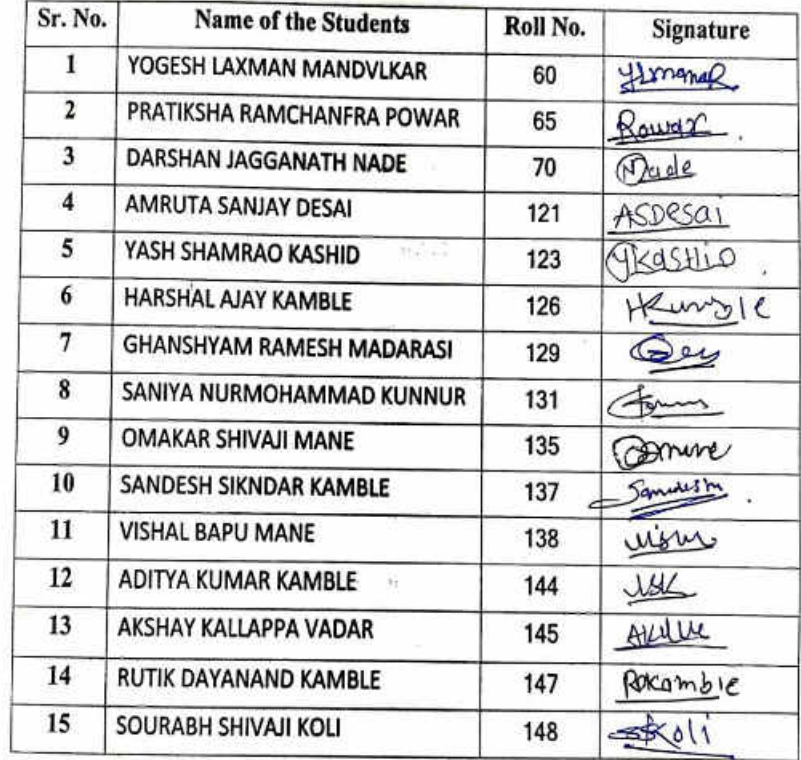 Sr. No. Name of the Students Roll No. Signature
1 YOGESH LAXMAN MANDVLKAR 60
2 PRATIKSHA RAMCHANFRA POWAR 65
3 DARSHAN JAGGANATH NADE 70 Nade
4 AMRUTA SANJAY DESAI 121 ASDesai
5 YASH SHAMRAO KASHID 123 YKASHID
6 HARSHAL AJAY KAMBLE 126
7 GHANSHYAM RAMESH MADARASI 129
8 SANIYA NURMOHAMMAD KUNNUR 131
9 OMAKAR SHIVAJI MANE 135
10 SANDESH SIKNDAR KAMBLE 137
11 VISHAL BAPU MANE 138
12 ADITYA KUMAR KAMBLE 144
13 AKSHAY KALLAPPA VADAR 145
14 RUTIK DAYANAND KAMBLE 147
15 SOURABH SHIVAJI KOLI 148